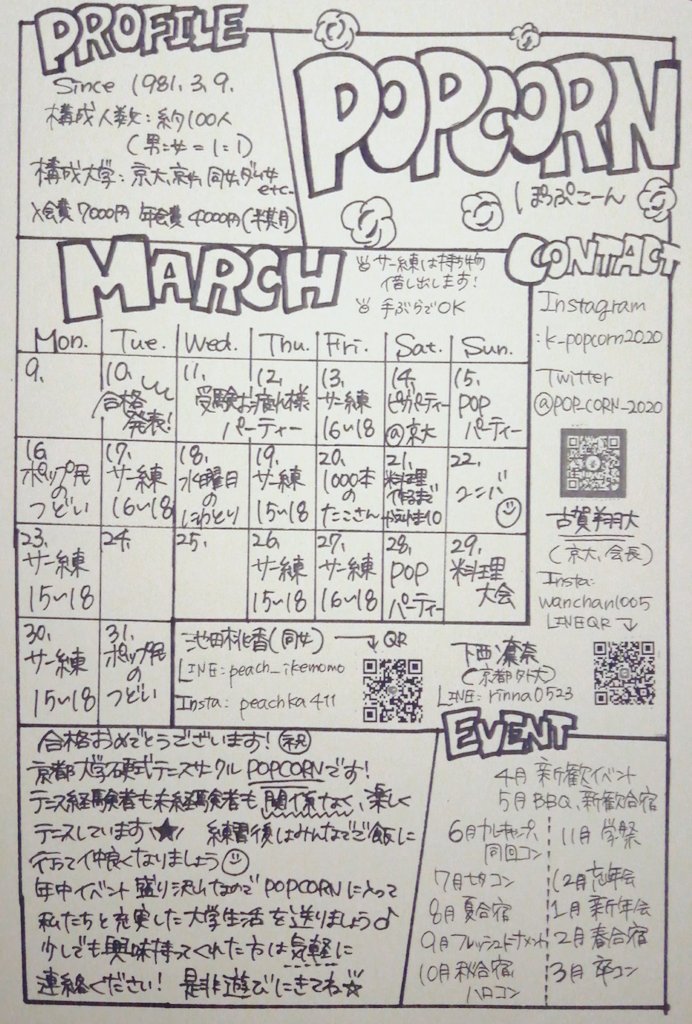 PROFILE
Since 1981.3.9.
構成人数:約100人
(男:女=1:1)
構成大学:京大,京外,同女,ダム女
etc...
入会費7000円 年会費4000円(半期)
POPCORN
ぽっぷこーん
MARCH
サー練は持ち物
貸し出します!
手ぶらでOK
Mon. Tue. Wed. Thu. Fri. Sat. Sun.
9.
10. 合格発表!
11. 12. 受験お疲れ様パーティー
13. サー練 16~18
14. ピザパーティー @京大
15. POPパーティー
16. ポップ民のつどい
17. サー練 16~18
18. 水曜日のにわとり
19. サー練 15~18
20. 1000本のたこさん
21. 料理
22. コンパ
23. サー練 15~18
24.
25.
26. サー練 15~18
27. サー練 16~18
28. POPパーティー
29. 料理大会
30. サー練 15~18
31. ポップ民のつどい
CONTACT
Instagram
:k-popcorn2020
Twitter
@POP_CORN_2020
古賀翔大
(京大,会長)
Insta:
wanchan1005
LINEQR
池田桃香(同女) QR
LINE:peach_ikemomo
Insta:peachka411
下西凛奈
(京都外大)
LINE:rinna0523
合格おめでとうございます!祝
京都大学硬式テニスサークルPOPCORNです!
テニス経験者も未経験者も関係なく、楽しく
テニスしています★ 練習後はみんなでご飯に
行って仲良くなりましょう
年中イベント盛り沢山なのでPOPCORNに入って
私たちと充実した大学生活を送りましょう♪
少しでも興味持ってくれた方は気軽に
連絡ください! 是非遊びにきてね☆
EVENT
4月 新歓イベント
5月 BBQ、新歓合宿
6月 カレキャンプ、同回コン
7月 七夕コン
8月 夏合宿
9月 フレッシュトーナメント
10月 秋合宿 ハロコン
11月 学祭
12月 忘年会
1月 新年会
2月 春合宿
3月 卒コン